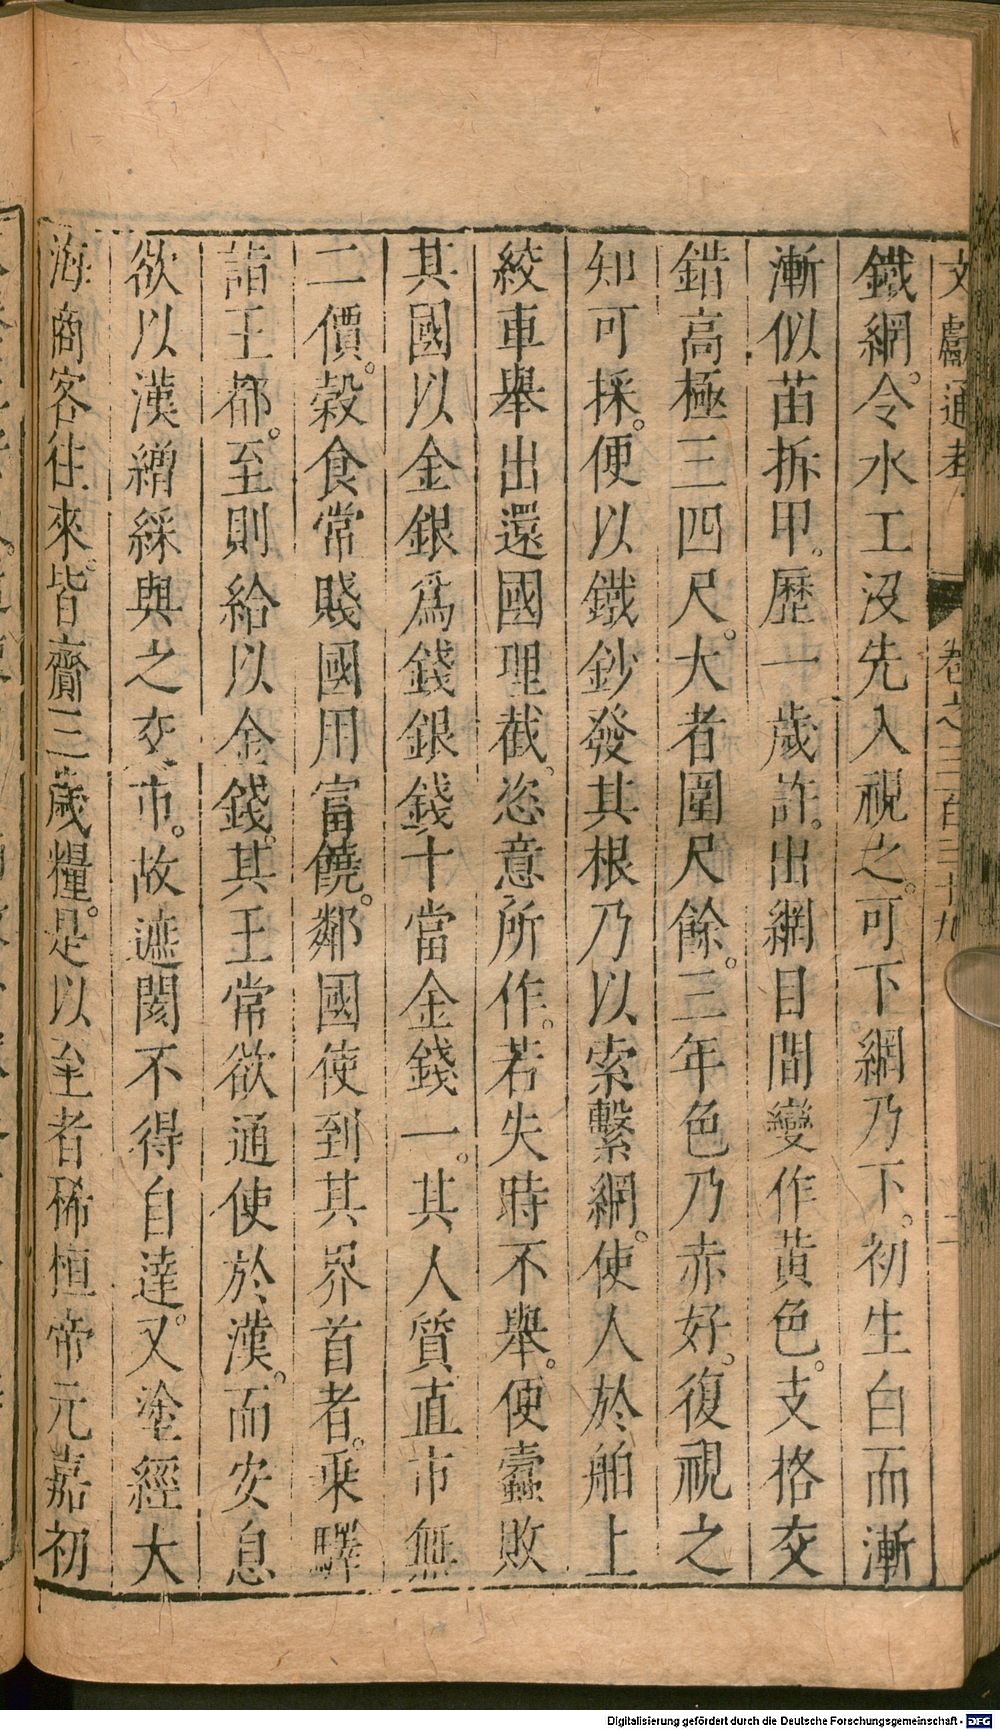 文獻通考 卷之三百三十九 二
鐵網。令水工沒先入視之。可下網乃下。初生白而漸
漸似苗拆甲。歷一歲許。出網目間變作黃色。支格交
錯高極三四尺。大者圍尺餘。三年色乃赤好。復視之
知可採。便以鐵鈔發其根乃以索繫網。使人於舶上
絞車舉出還國理截。恣意所作。若失時不舉。便蠹敗
其國以金銀爲錢銀錢十當金錢一。其人質直市無
二價。穀食常賤國用富饒。鄰國使到其界首者。乘驛
詣王都。至則給以金錢。其王常欲通使於漢。而安息
欲以漢繒綵與之交市。故遮閡不得自達。又塗經大
海商客往來。皆齎三歲糧。是以至者稀恒帝元嘉初
Digitalisierung gefördert durch die Deutsche Forschungsgemeinschaft - DFG